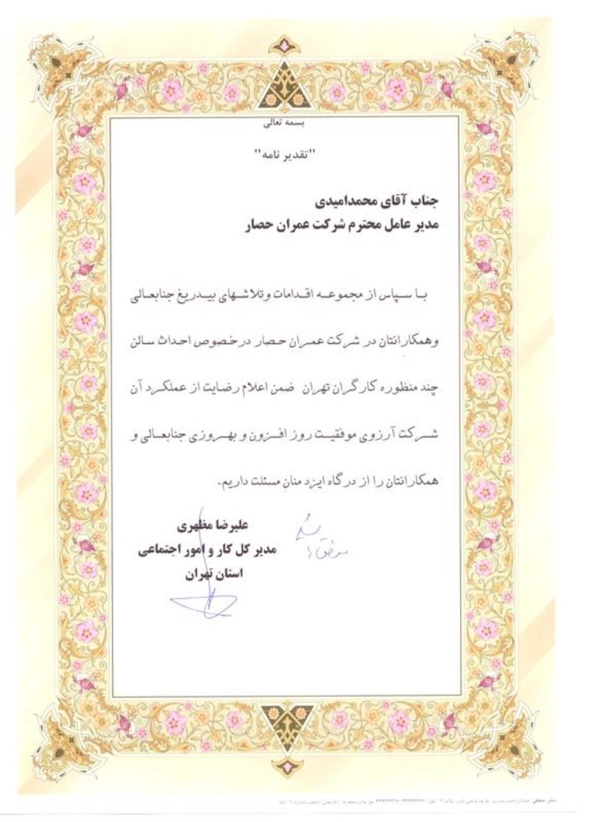 بسمه تعالی
"تقدیر نامه"
جناب آقای محمدامیدی
مدیر عامل محترم شرکت عمران حصار
با سپاس از مجموعه اقدامات وتلاشهای بیدریغ جنابعالی
وهمکارانتان در شرکت عمران حصار درخصوص احداث سالن
چند منظوره کارگران تهران ضمن اعلام رضایت از عملکرد آن
شرکت آرزوی موفقیت روز افزون و بهروزی جنابعالی و
همکارانتان را از درگاه ایزد منان مسئلت داریم.
علیرضا مظهری
مدیر کل کار و امور اجتماعی
استان تهران